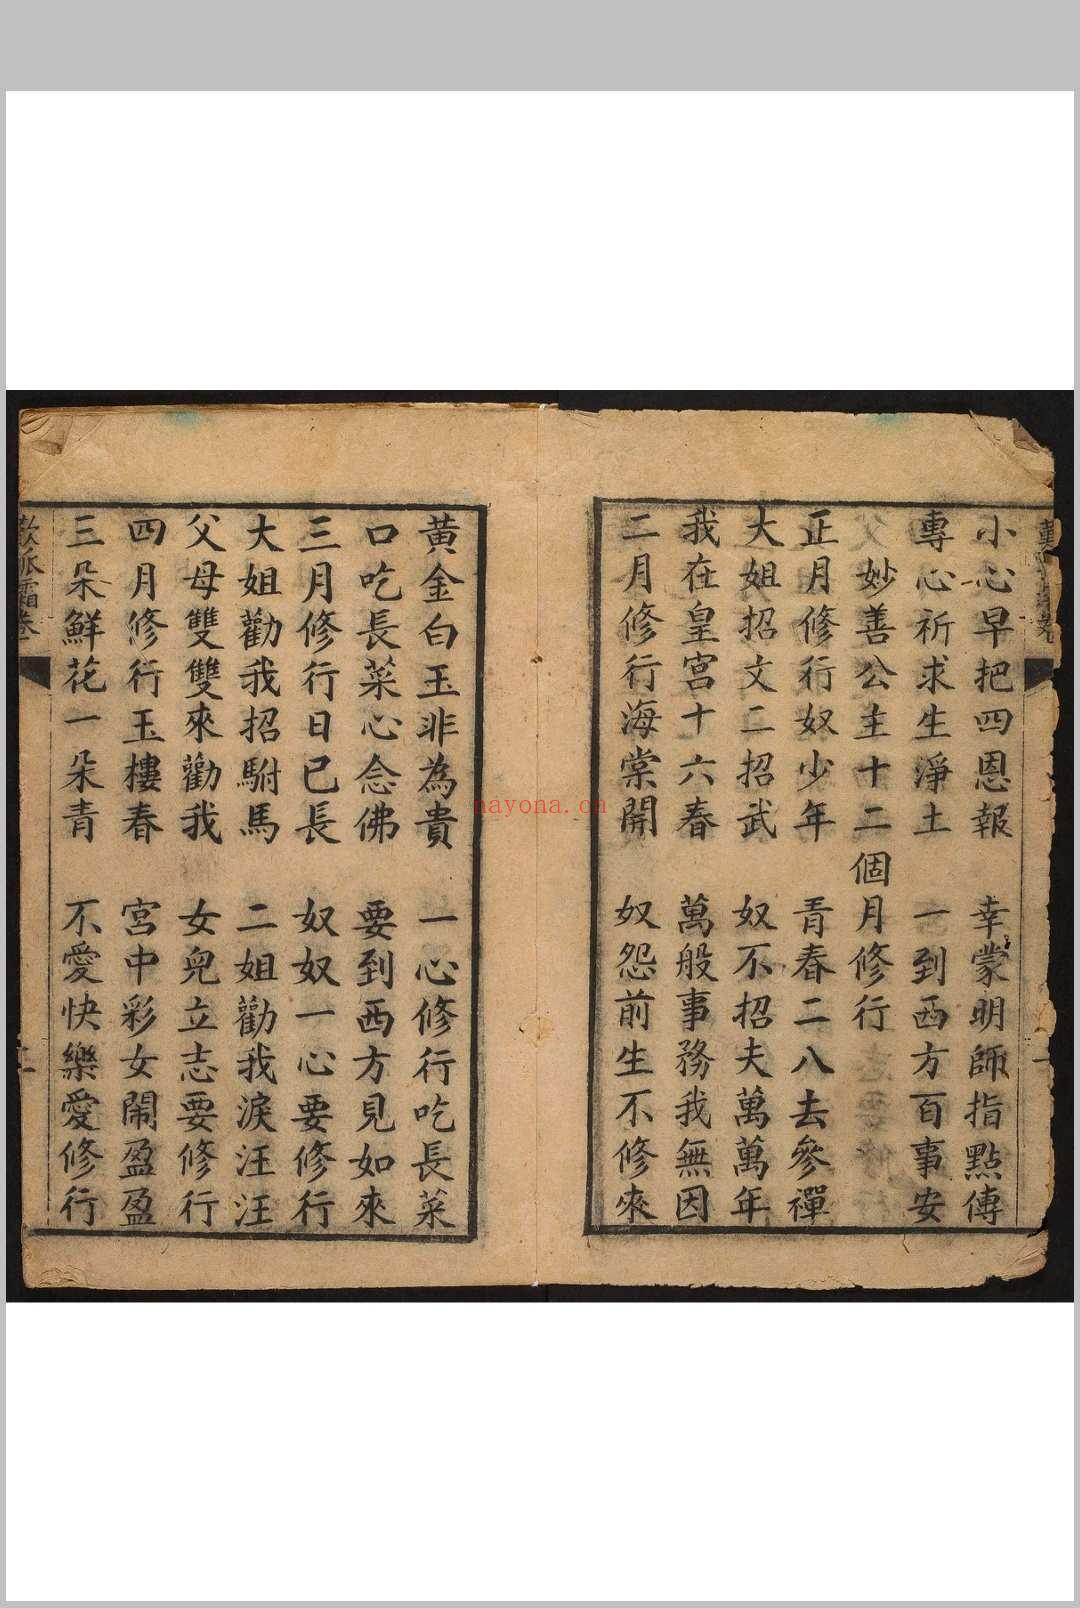 小心早把四恩報　幸蒙明師指點傳
專心祈求生淨土　一到西方百事安
妙善公主十二個月修行
正月修行奴少年　青春二八去參禪
大姐招文二招武　奴不招夫萬萬年
我在皇宮十六春　萬般事務我無因
二月修行海棠開　奴怨前生不修來
黃金白玉非為貴　一心修行吃長菜
口吃長菜心念佛　要到西方見如來
三月修行日已長　奴奴一心要修行
大姐勸我招駙馬　二姐勸我淚汪汪
父母雙雙來勸我　女兒立志要修行
四月修行玉樓春　宮中彩女鬧盈盈
三朵鮮花一朵青　不愛快樂愛修行
nayona.cn